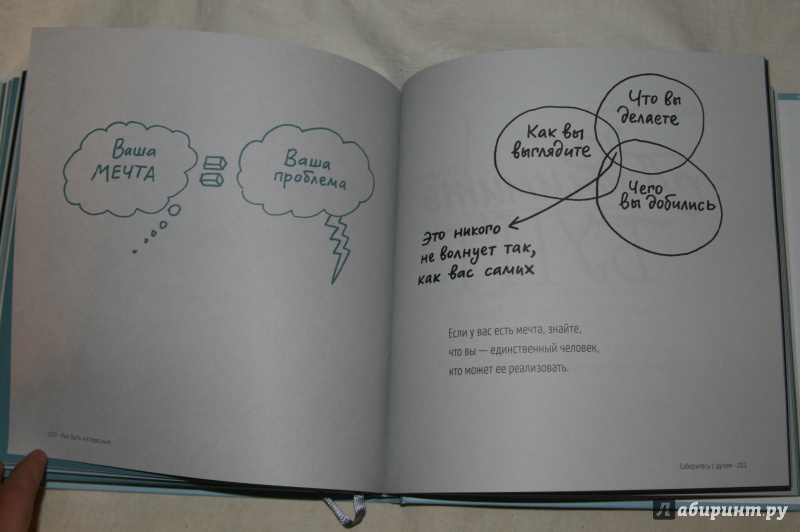 Ваша
МЕЧТА
Ваша
проблема
220 · Как быть интересным
Что вы
делаете
Как вы
выглядите
Чего
вы добились
Это никого
не волнует так,
как вас самих
Если у вас есть мечта, знайте,
что вы — единственный человек,
кто может ее реализовать.
Соберитесь с духом · 221
Лабиринт.ру